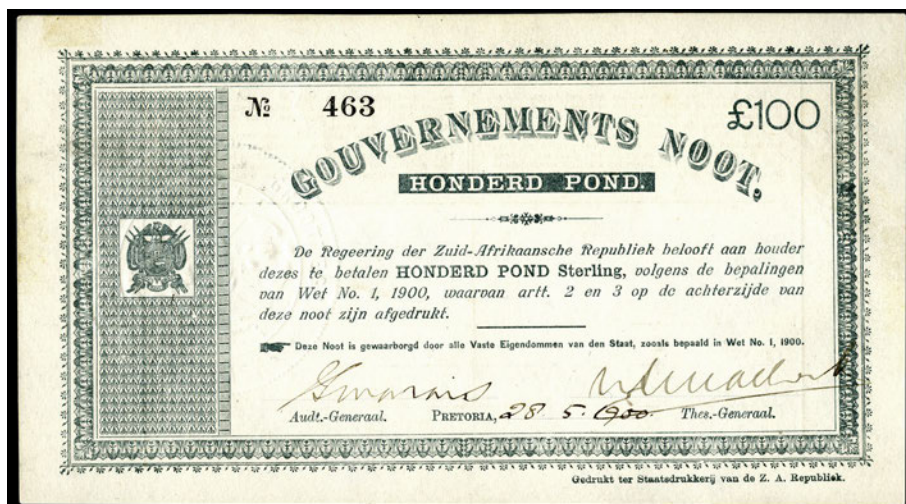 № 463
£100
GOUVERNEMENTS NOOT,
HONDERD POND.
De Regeering der Zuid-Afrikaansche Republiek belooft aan houder
dezes te betalen HONDERD POND Sterling, volgens de bepalingen
van Wet No. 1, 1900, waarvan artt. 2 en 3 op de achterzijde van
deze noot zijn afgedrukt.
Deze Noot is gewaarborgd door alle Vaste Eigendommen van den Staat, zooals bepaald in Wet No. 1, 1900.
Audt.-Generaal. PRETORIA, 28. 5. 1900. Thes.-Generaal.
Gedrukt ter Staatsdrukkerij van de Z. A. Republiek.